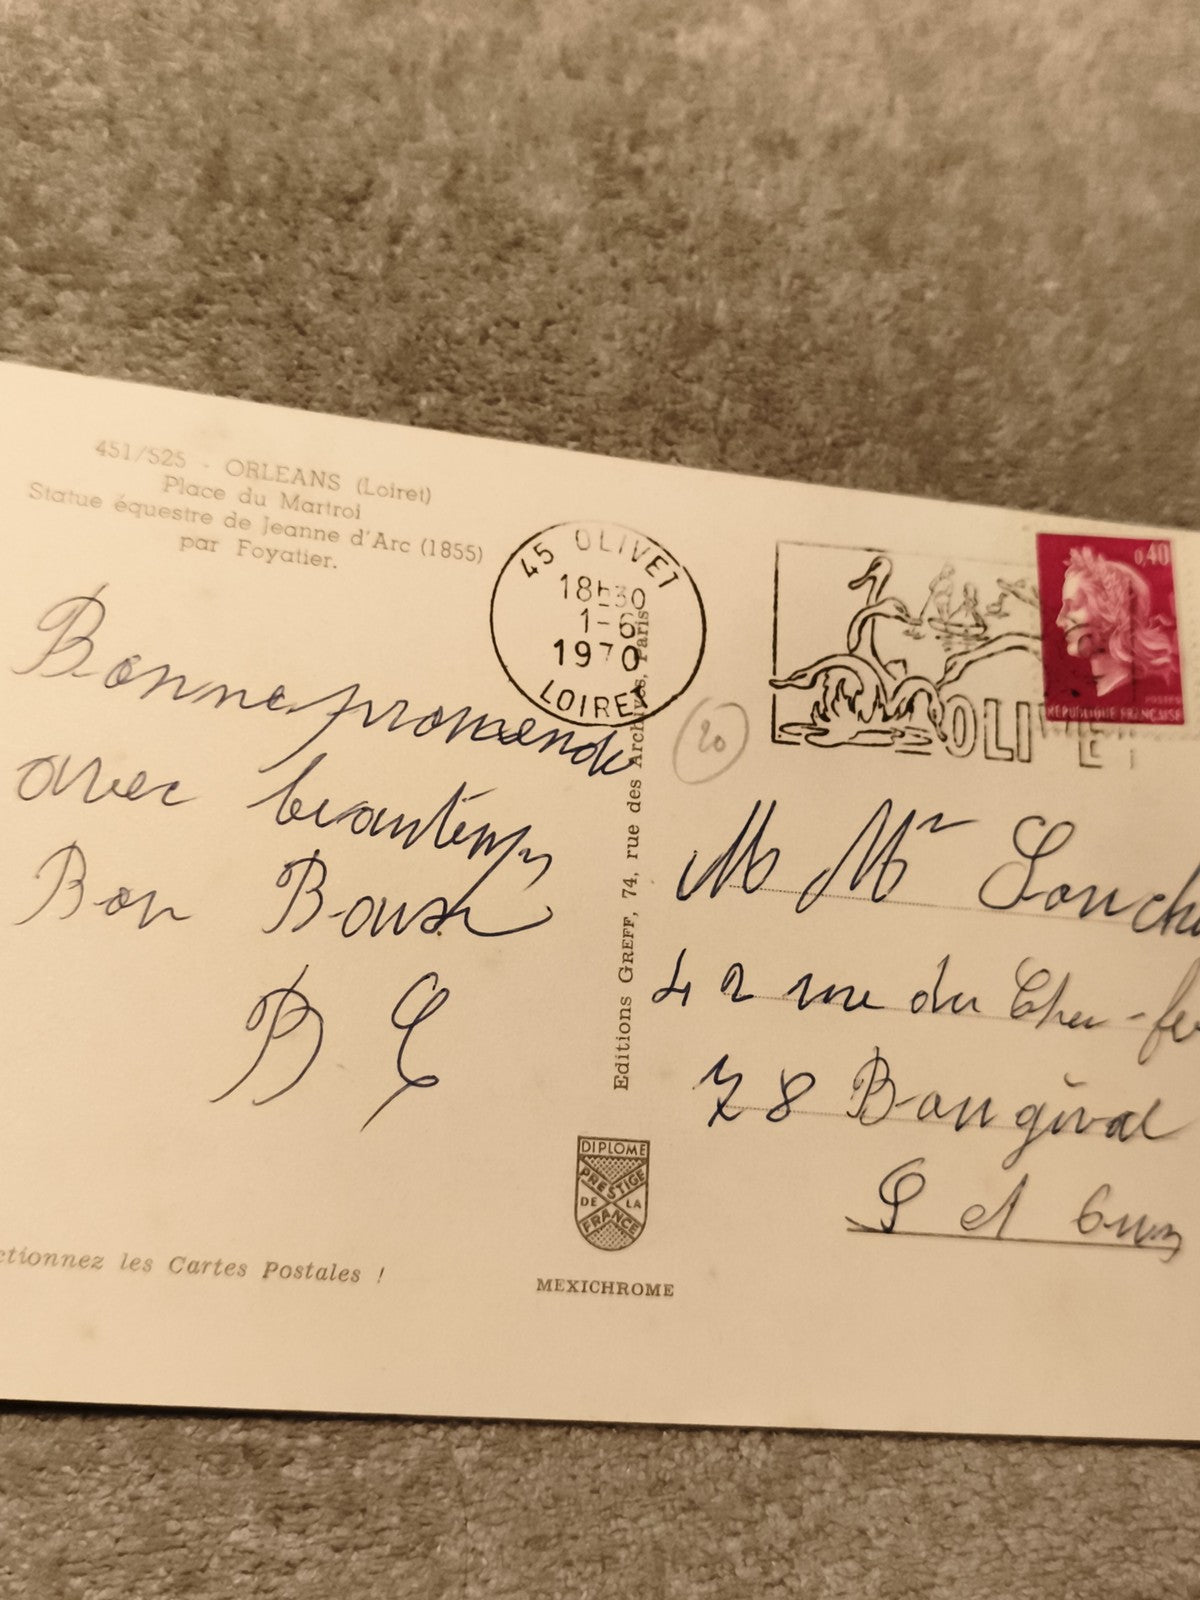 451/525 - ORLEANS (Loiret)
Place du Martroi
Statue équestre de Jeanne d'Arc (1855)
par Foyatier.
45 OLIVET
18h30
1-6
1970
LOIRET
OLIVET
0,40
POSTES
REPUBLIQUE FRANÇAISE
20
Bonne promenade
avec beau temps
Bon
B
Editions GREFF, 74, rue des Archives, Paris
M Mr
42 rue du
78 Bougival
S et
DIPLOME
PRESTIGE
DE LA
FRANCE
ctionnez les Cartes Postales !
MEXICHROME